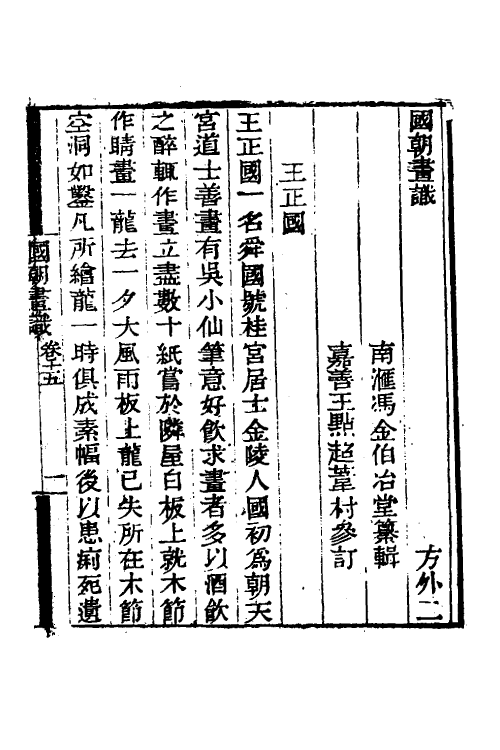 國朝畫識　方外二
南滙馮金伯冶堂纂輯
嘉善王㸃超葦村參訂
王正國
王正國一名舜國號桂宮居士金陵人國初爲朝天
宮道士善畫有吳小仙筆意好飮求畫者多以酒飮
之醉輒作畫立盡數十紙嘗於隣屋白板上就木節
作睛畫一龍去一夕大風雨板上龍已失所在木節
空洞如鑿凡所繪龍一時俱成素幅後以患痢死遺
國朝畫識　卷十五　一